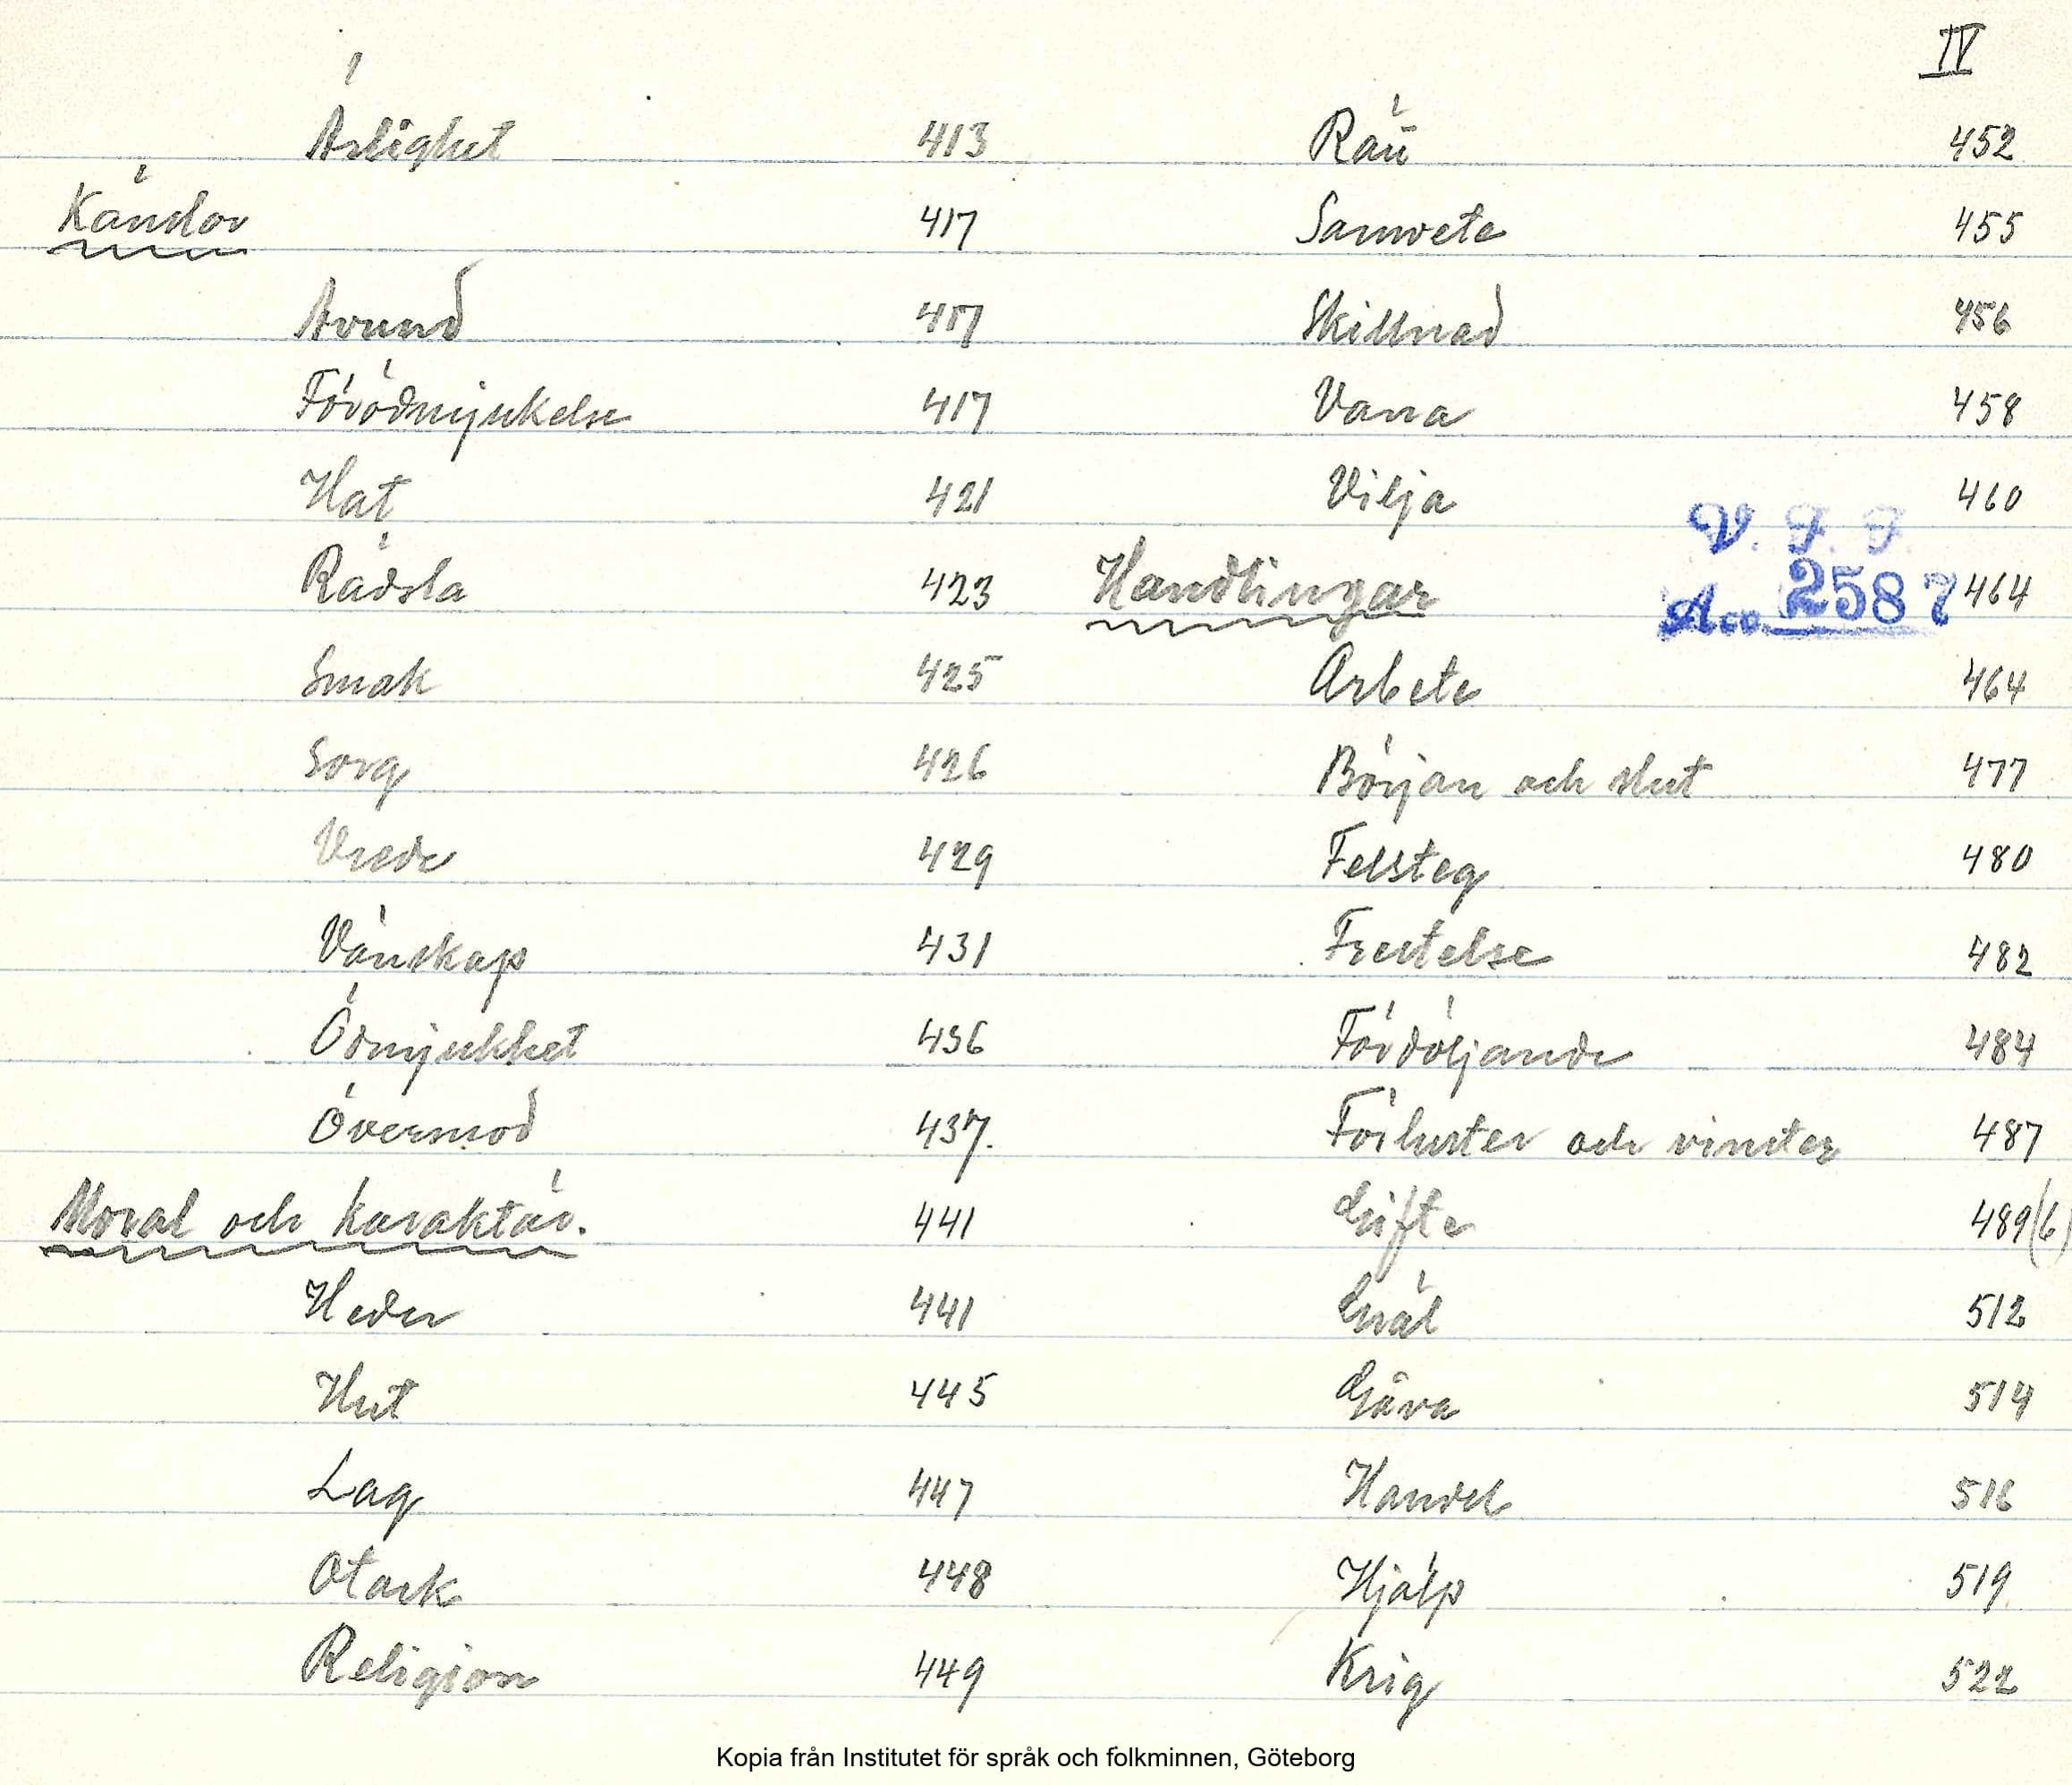 IV
Ärlighet 413
Känslor 417
Avund 417
Förödmjukelse 417
Hat 421
Rädsla 423
Smak 425
Sorg 426
Vrede 429
Vänskap 431
Ödmjukhet 436
Övermod 437.
Moral och karaktär. 441
Heder 441
Hut 445
Lag 447
Otack 448
Religion 449
Rätt 452
Samvete 455
Skillnad 456
Vana 458
Vilja 460
V. F. F.
Acc. 2587
Handlingar 464
Arbete 464
Början och slut 477
Felsteg 480
Frestelse 482
Fördöljande 484
Förluster och vinster 487
Gifte 489(6)
Gräl 512
Gåva 514
Handel 516
Hjälp 519
Krig 522
Kopia från Institutet för språk och folkminnen, Göteborg